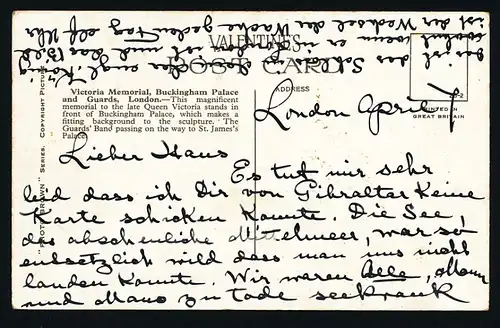 VALENTINES
POST CARD
"PHOTO BROWN" SERIES. COPYRIGHT PICTURE
Victoria Memorial, Buckingham Palace
and Guards, London.—This magnificent
memorial to the late Queen Victoria stands in
front of Buckingham Palace, which makes a
fitting background to the sculpture. The
Guards' Band passing on the way to St. James's
Palace
ADDRESS
PRINTED IN
GREAT BRITAIN
London April
Lieber Haus
Es tut mir sehr
leid dass ich Dir von Gibraltar keine
Karte schicken konnte. Die See,
das abscheuliche Mittelmeer, war so
entsetzlich wild dass man uns nicht
landen konnte. Wir waren Alle, Mann
und Maus zu Tode seekrank
das Bild
König
und
ist der Wechsel der Wache jeden Tag elf Uhr